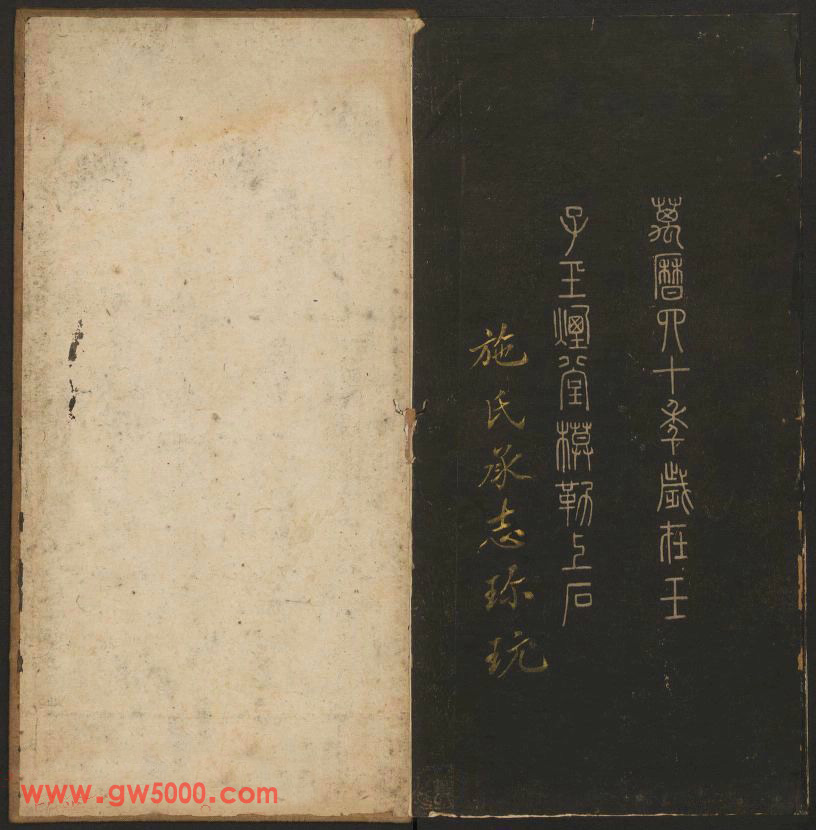 萬曆四十年歲在壬
子玉煙堂模勒上石
施氏承志珎玩
www.gw5000.com